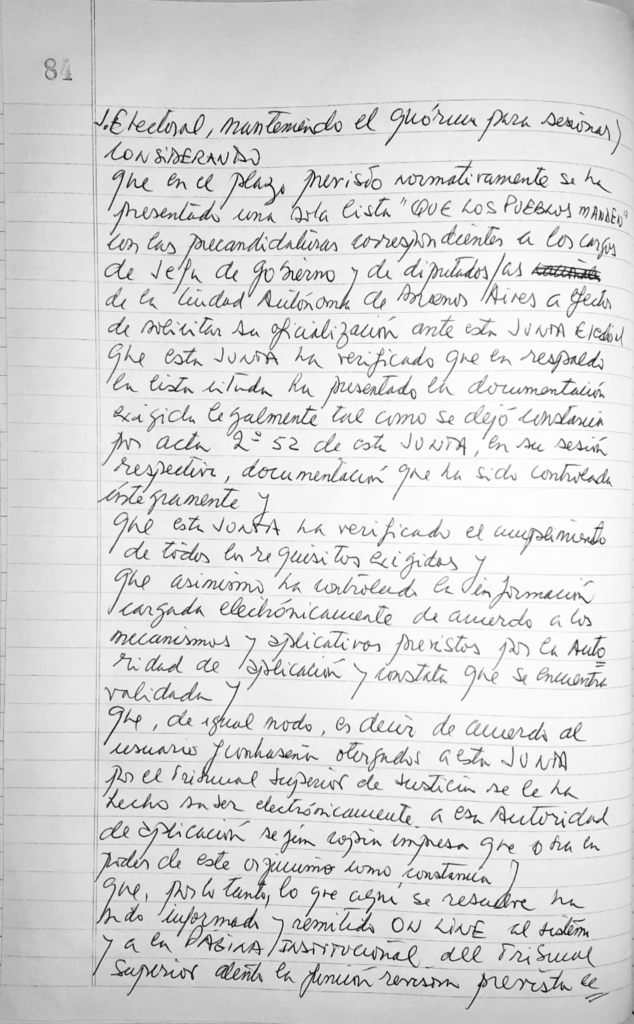 84
J. Electoral, manteniendo el quórum para sesionar)
CONSIDERANDO
que en el plazo previsto normativamente se ha
presentado una sola lista "QUE LOS PUEBLOS MANDEN"
con las precandidaturas correspondientes a los cargos
de Jefa de Gobierno y de diputados/as
de la Ciudad Autónoma de Buenos Aires a efectos
de solicitar su oficialización ante esta JUNTA Electoral
que esta JUNTA ha verificado que en respaldo
la lista citada ha presentado la documentación
exigida legalmente tal como se dejó constancia
por acta 2º 52 de esta JUNTA, en su sesión
respectiva, documentación que ha sido controlada
íntegramente y
que esta JUNTA ha verificado el cumplimiento
de todos los requisitos exigidos y
que asimismo ha controlado la información
cargada electrónicamente de acuerdo a los
mecanismos y aplicativos previstos por la Auto
ridad de aplicación y constata que se encuentra
validada y
que, de igual modo, es decir de acuerdo al
usuario y contraseña otorgados a esta JUNTA
por el Tribunal Superior de Justicia se le ha
hecho saber electrónicamente a esa Autoridad
de aplicación según copia impresa que obra en
poder de este organismo como constancia y
que, por lo tanto, lo que aquí se resuelve ha
sido informado y remitido ON LINE al sistema
y a la PÁGINA INSTITUCIONAL del Tribunal
Superior la función revisora prevista